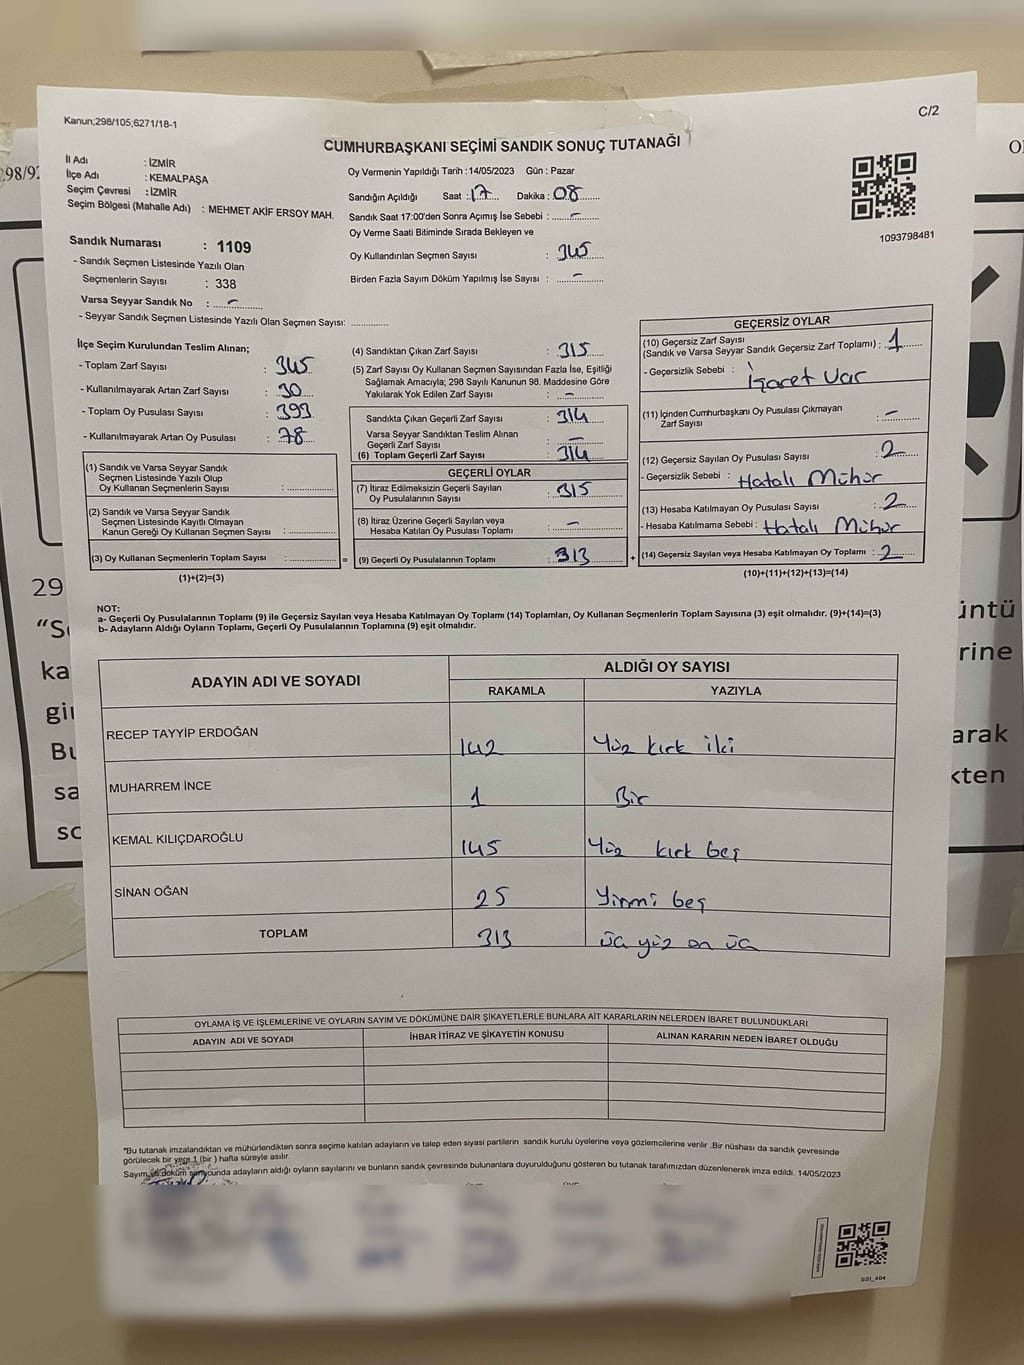 Kanun;298/105;6271/18-1
C/2
CUMHURBAŞKANI SEÇİMİ SANDIK SONUÇ TUTANAĞI
İl Adı : İZMİR
İlçe Adı : KEMALPAŞA
Seçim Çevresi : İZMİR
Seçim Bölgesi (Mahalle Adı) : MEHMET AKİF ERSOY MAH.
Oy Vermenin Yapıldığı Tarih : 14/05/2023 Gün : Pazar
Sandığın Açıldığı Saat : 17 Dakika : 08
Sandık Saat 17:00'den Sonra Açımış İse Sebebi : -
Oy Verme Saati Bitiminde Sırada Bekleyen ve
Oy Kullandırılan Seçmen Sayısı : 345
Birden Fazla Sayım Döküm Yapılmış İse Sayısı : -
1093798481
Sandık Numarası : 1109
- Sandık Seçmen Listesinde Yazılı Olan
Seçmenlerin Sayısı : 338
Varsa Seyyar Sandık No : -
- Seyyar Sandık Seçmen Listesinde Yazılı Olan Seçmen Sayısı: ..............
İlçe Seçim Kurulundan Teslim Alınan;
- Toplam Zarf Sayısı : 345
- Kullanılmayarak Artan Zarf Sayısı : 30
- Toplam Oy Pusulası Sayısı : 393
- Kullanılmayarak Artan Oy Pusulası : 78
(1) Sandık ve Varsa Seyyar Sandık
Seçmen Listesinde Yazılı Olup
Oy Kullanan Seçmenlerin Sayısı :
(2) Sandık ve Varsa Seyyar Sandık
Seçmen Listesinde Kayıtlı Olmayan
Kanun Gereği Oy Kullanan Seçmen Sayısı :
(3) Oy Kullanan Seçmenlerin Toplam Sayısı :
=
(1)+(2)=(3)
(4) Sandıktan Çıkan Zarf Sayısı : 315
(5) Zarf Sayısı Oy Kullanan Seçmen Sayısından Fazla İse, Eşitliği
Sağlamak Amacıyla; 298 Sayılı Kanunun 98. Maddesine Göre
Yakılarak Yok Edilen Zarf Sayısı : -
Sandıkta Çıkan Geçerli Zarf Sayısı : 314
Varsa Seyyar Sandıktan Teslim Alınan
Geçerli Zarf Sayısı : -
(6) Toplam Geçerli Zarf Sayısı : 314
GEÇERLİ OYLAR
(7) İtiraz Edilmeksizin Geçerli Sayılan
Oy Pusulalarının Sayısı : 315
(8) İtiraz Üzerine Geçerli Sayılan veya
Hesaba Katılan Oy Pusulası Toplamı : -
(9) Geçerli Oy Pusulalarının Toplamı : 313
+
GEÇERSİZ OYLAR
(10) Geçersiz Zarf Sayısı
(Sandık ve Varsa Seyyar Sandık Geçersiz Zarf Toplamı) : 1
- Geçersizlik Sebebi : İşaret var
(11) İçinden Cumhurbaşkanı Oy Pusulası Çıkmayan
Zarf Sayısı : -
(12) Geçersiz Sayılan Oy Pusulası Sayısı : 2
- Geçersizlik Sebebi : Hatalı Mühür
(13) Hesaba Katılmayan Oy Pusulası Sayısı : 2
- Hesaba Katılmama Sebebi : Hatalı Mühür
(14) Geçersiz Sayılan veya Hesaba Katılmayan Oy Toplamı : 2
(10)+(11)+(12)+(13)=(14)
NOT:
a- Geçerli Oy Pusulalarının Toplamı (9) ile Geçersiz Sayılan veya Hesaba Katılmayan Oy Toplamı (14) Toplamları, Oy Kullanan Seçmenlerin Toplam Sayısına (3) eşit olmalıdır. (9)+(14)=(3)
b- Adayların Aldığı Oyların Toplamı, Geçerli Oy Pusulalarının Toplamına (9) eşit olmalıdır.
ADAYIN ADI VE SOYADI
ALDIĞI OY SAYISI
RAKAMLA YAZIYLA
RECEP TAYYİP ERDOĞAN 142 Yüz kırk iki
MUHARREM İNCE 1 Bir
KEMAL KILIÇDAROĞLU 145 Yüz kırk beş
SİNAN OĞAN 25 Yirmi beş
TOPLAM 313 üç yüz on üç
OYLAMA İŞ VE İŞLEMLERİNE VE OYLARIN SAYIM VE DÖKÜMÜNE DAİR ŞİKAYETLERLE BUNLARA AİT KARARLARIN NELERDEN İBARET BULUNDUKLARI
ADAYIN ADI VE SOYADI İHBAR İTİRAZ VE ŞİKAYETİN KONUSU ALINAN KARARIN NEDEN İBARET OLDUĞU
"Bu tutanak imzalandıktan ve mühürlendikten sonra seçime katılan adayların ve talep eden siyasi partilerin sandık kurulu üyelerine veya gözlemcilerine verilir. Bir nüshası da sandık çevresinde
görülecek bir yere 1 (bir ) hafta süreyle asılır.
Sayım ve döküm sonucunda adayların aldığı oyların sayılarını ve bunların sandık çevresinde bulunanlara duyurulduğunu gösteren bu tutanak tarafımızdan düzenlenerek imza edildi. 14/05/2023
29
"S
ka
gi
Bu
sa
so
üntü
rine
arak
kten